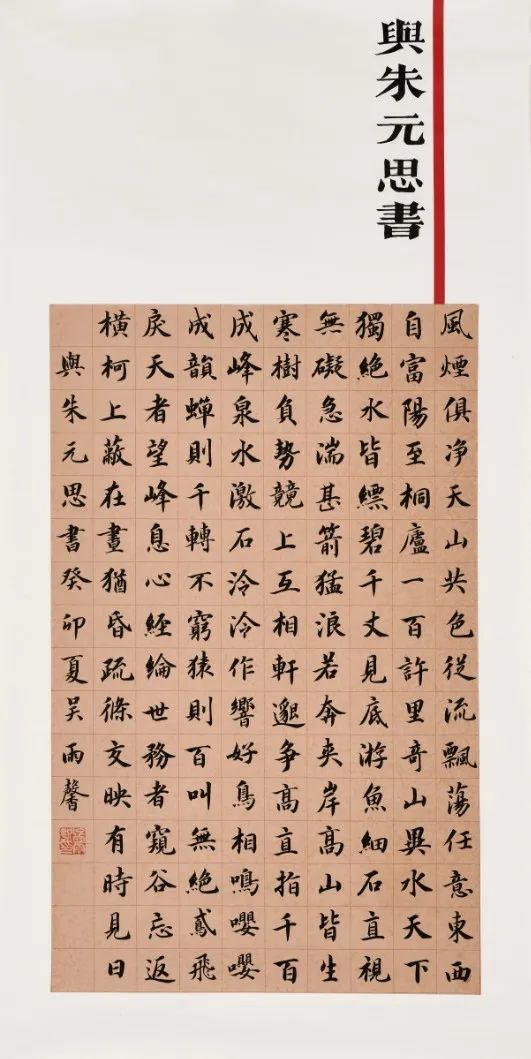 與朱元思書
風煙俱净天山共色從流飄蕩任意東西
自富陽至桐廬一百許里奇山異水天下
獨絕水皆縹碧千丈見底游魚細石直視
無礙急湍甚箭猛浪若奔夾岸高山皆生
寒樹負勢競上互相軒邈争高直指千百
成峰泉水激石泠泠作響好鳥相鳴嚶嚶
成韻蟬則千轉不窮猿則百叫無絕鳶飛
戾天者望峰息心經綸世務者窺谷忘返
橫柯上蔽在晝猶昏疏條交映有時見日
與朱元思書癸卯夏吴雨馨